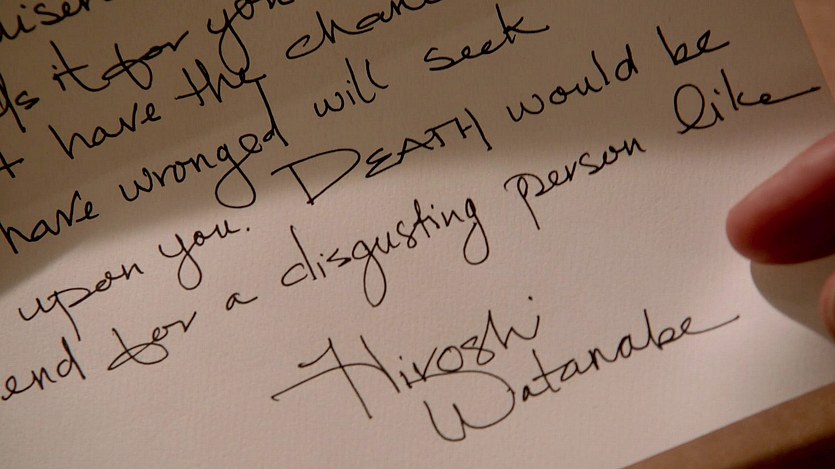 it for you
have the
have wronged will seek
upon you. DEATH would be
end for a disgusting person like
Hiroshi
Watanabe